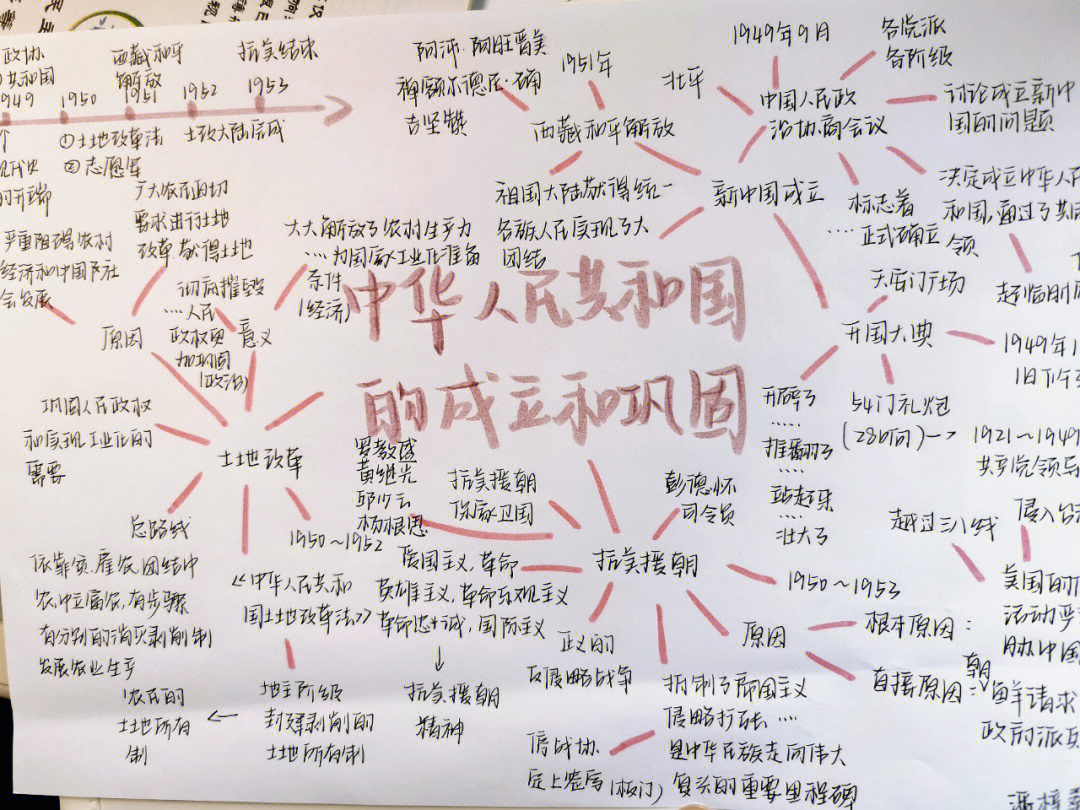 中华人民共和国
的成立和巩固
政协
共和国
1949
1950
西藏和平
解放
1951
1952
抗美结束
1953
①土地改革法
②志愿军
土改大陆完成
的开端
新中国成立
西藏和平解放
1951年
阿沛·阿旺晋美
吉坚赞
祖国大陆获得统一
各族人民实现了大
团结
中国人民政
治协商会议
1949年9月
北平
各党派
各阶级
讨论成立新中
国的问题
决定成立中华人民
和国,通过了共同
领
标志着
....正式确立
开国大典
天安门广场
起临时
1949年1
1日下午
54门礼炮
(28响)→
1921~1949
共产党领导
开辟了
.....
推翻了
....
站起来
....
壮大了
土地改革
原因
严重阻碍农村
经济和中国
会发展
广大农民迫切
要求进行土地
改革获得土地
巩固人民政权
和实现工业化的
需要
意义
彻底摧毁
....人民
政权更
加巩固
(政治)
大大解放了农村生产力
....为国家工业化准备
条件
(经济)
总路线
依靠贫、雇农,团结中
农,中立富农,有步骤
有分别的消灭剥削制
发展农业生产
1950~1952
《中华人民共和
国土地改革法》
地主阶级
封建剥削的
土地所有制
←
农民的
土地所有
制
抗美援朝
抗美援朝
保家卫国
彭德怀
司令员
罗教盛
黄继光
邱少云
杨根思
爱国主义,革命
英雄主义,革命乐观主义
革命忠诚,国际主义
↓
抗美援朝
精神
正义的
反侵略战争
1950~1953
原因
根本原因:
美国的
活动严
胁中国
越过三八线
侵入台
直接原因:
朝
鲜请求
政府派
抑制了帝国主义
侵略扩张....
是中华民族走向伟大
复兴的重要里程碑
停战协
定上签字(板门)